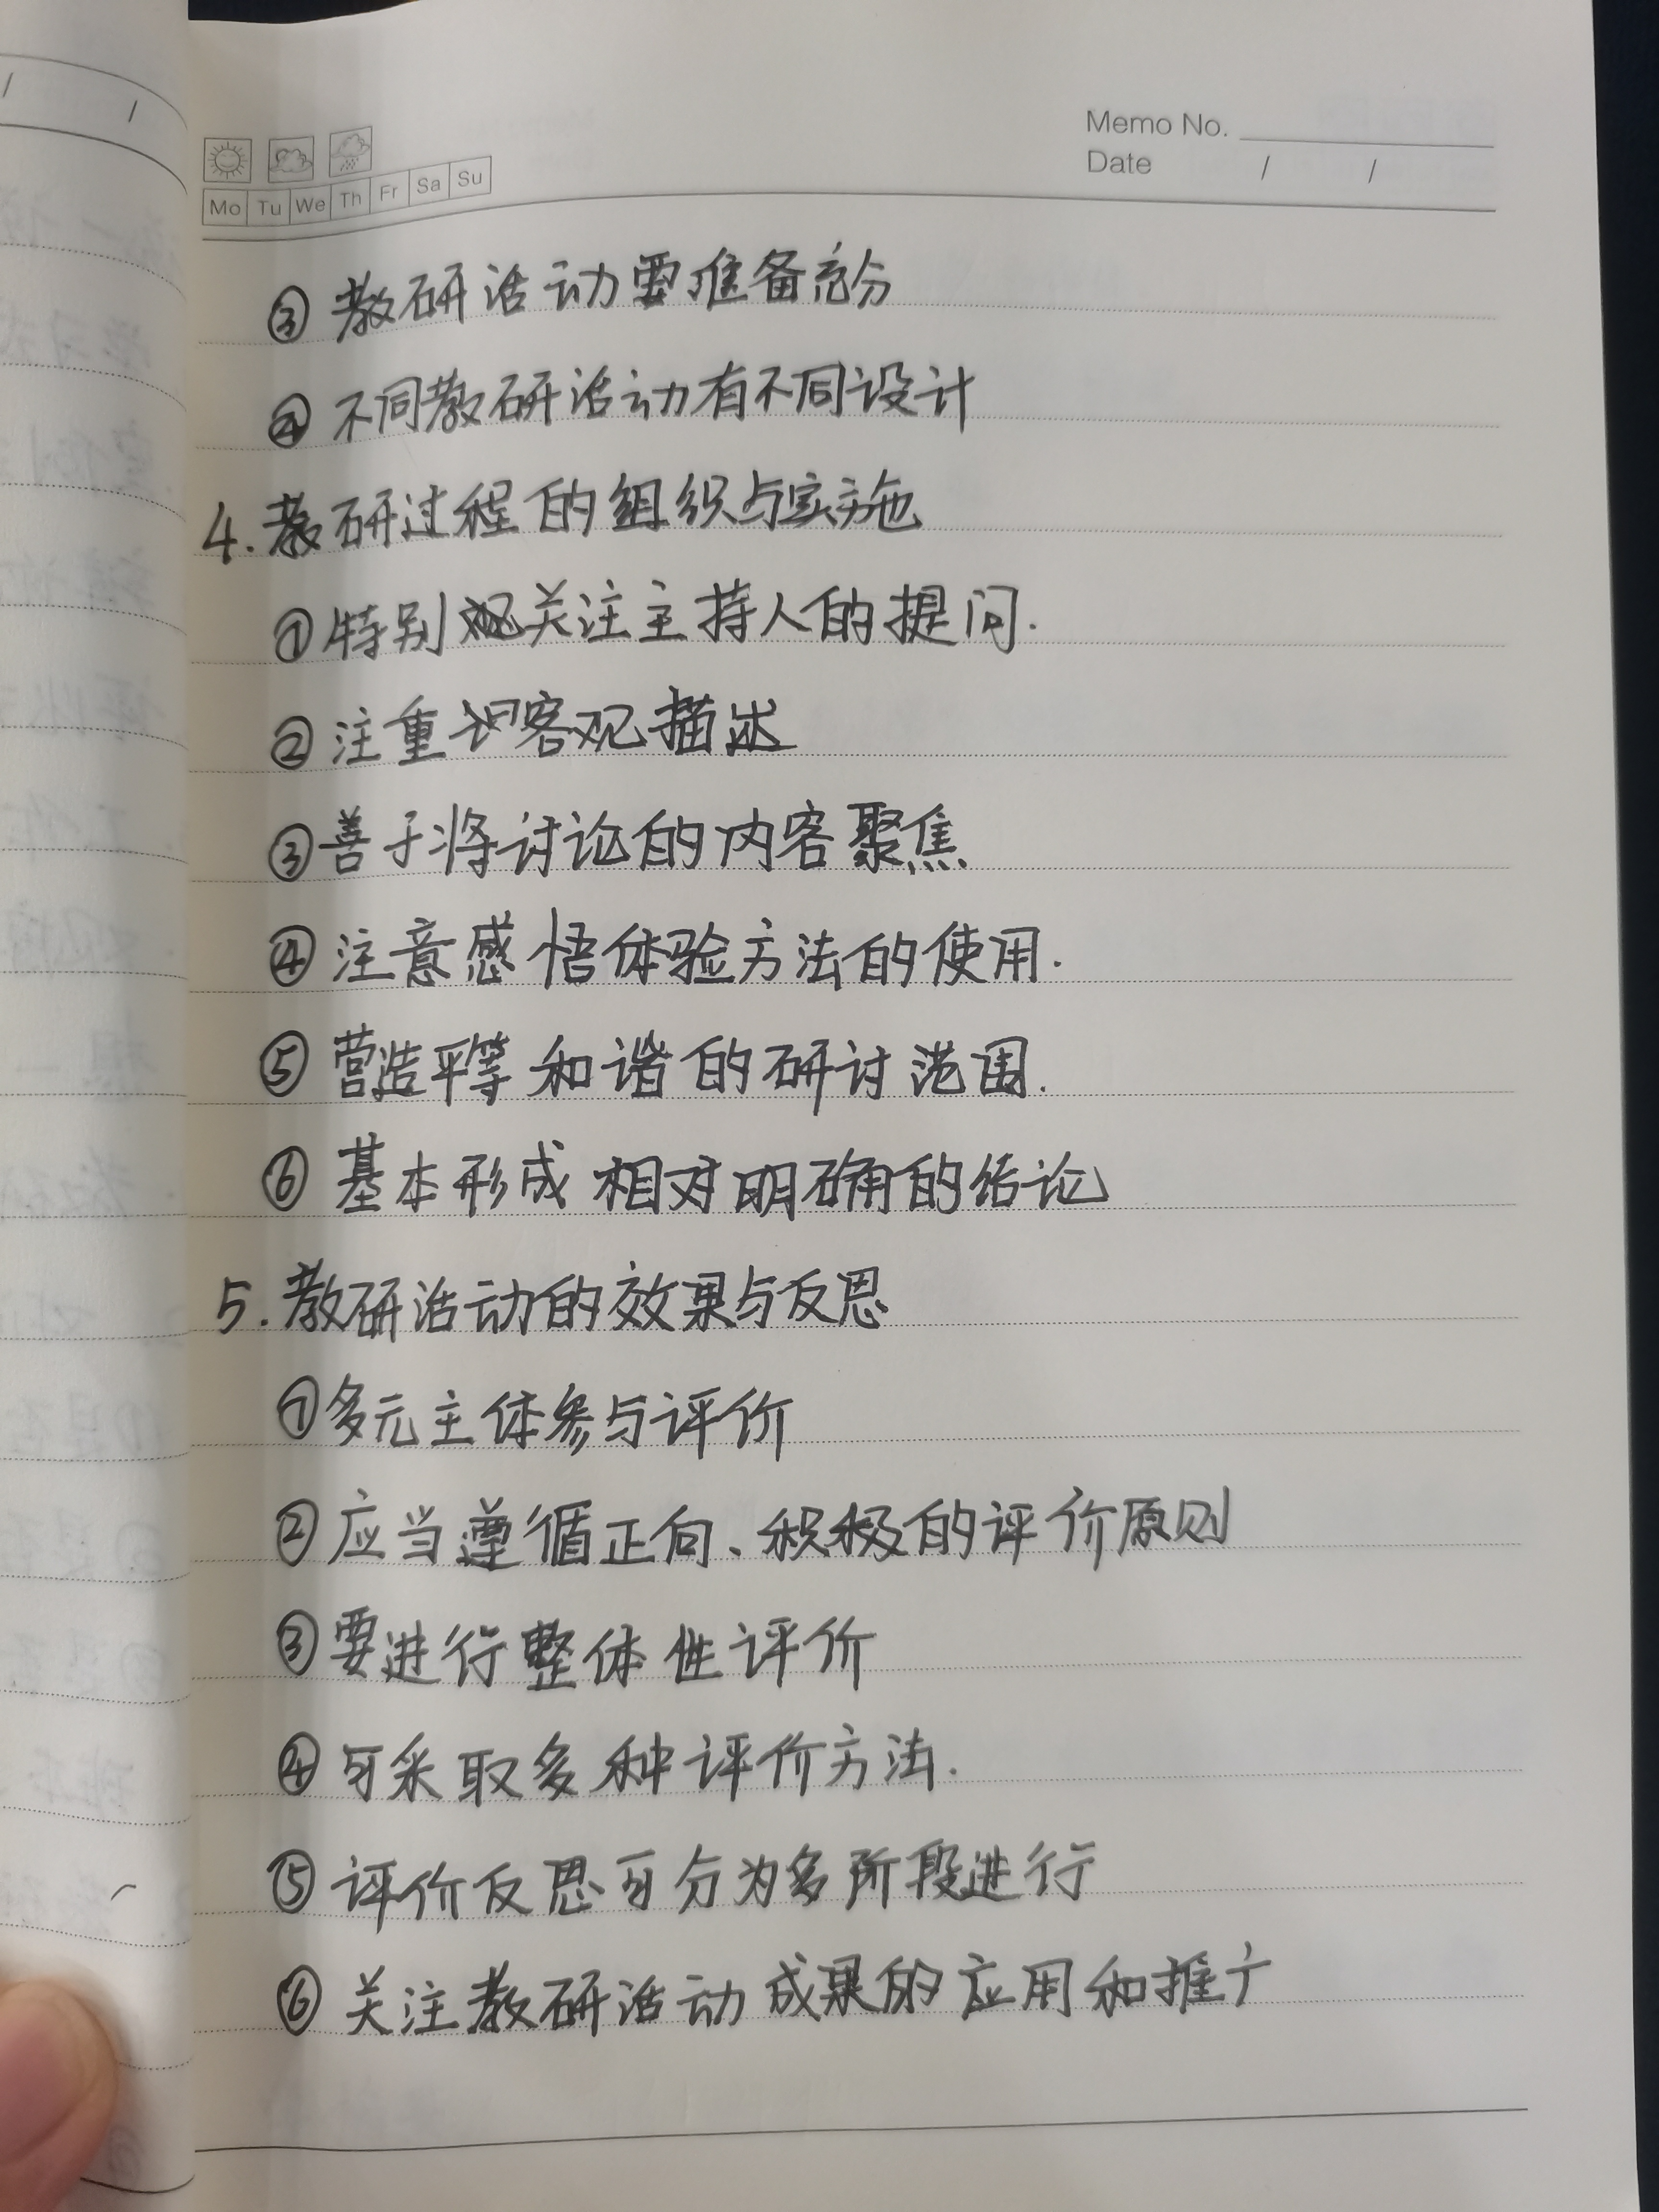 Memo No.
Date / /
Mo Tu We Th Fr Sa Su
③ 教研活动要准备充分
④ 不同教研活动有不同设计
4. 教研过程的组织与实施
① 特别关注主持人的提问.
② 注重客观描述
③ 善于将讨论的内容聚焦
④ 注意感悟体验方法的使用.
⑤ 营造平等和谐的研讨范围.
⑥ 基本形成相对明确的结论
5. 教研活动的效果与反思
① 多元主体参与评价
② 应当遵循正向、积极的评价原则
③ 要进行整体性评价
④ 可采取多种评价方法.
⑤ 评价反思可分为多阶段进行
⑥ 关注教研活动成果的应用和推广